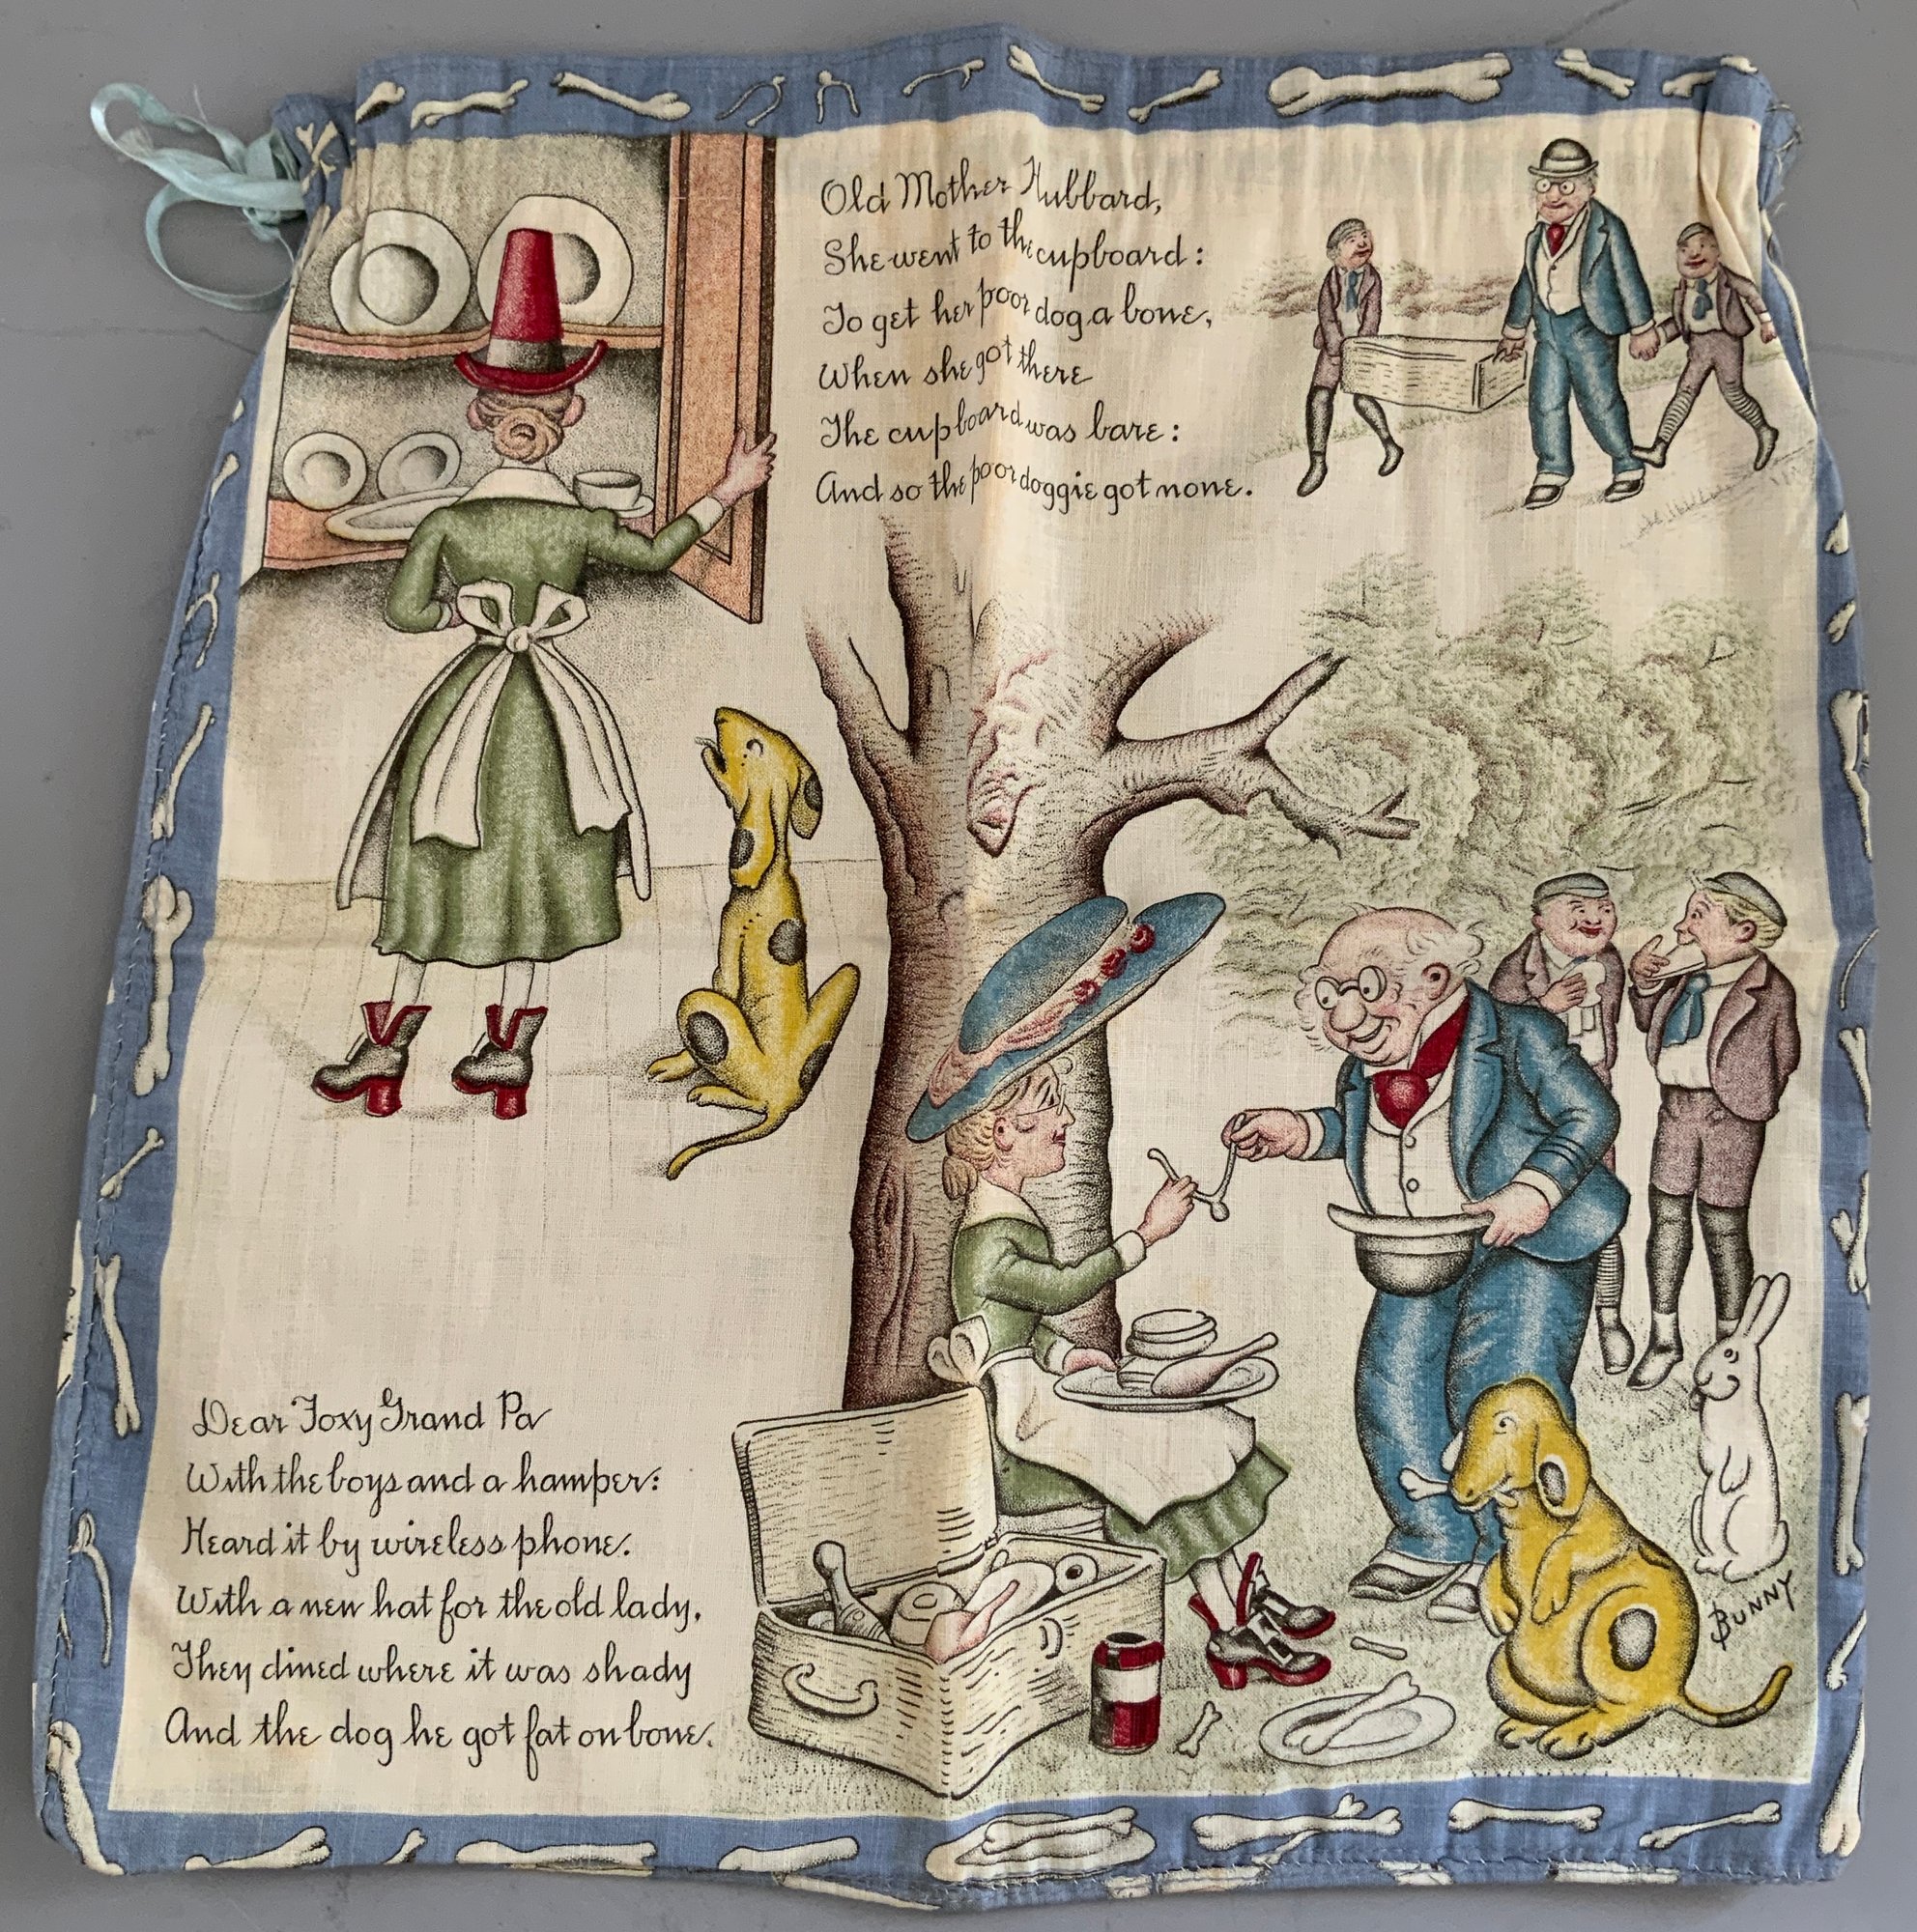 Old Mother Hubbard,
She went to the cupboard:
To get her poor dog a bone,
When she got there
The cupboard was bare:
And so the poor doggie got none.
Dear Foxy Grand Pa
With the boys and a hamper:
Heard it by wireless phone.
With a new hat for the old lady,
They dined where it was shady
And the dog he got fat on bone.
BUNNY